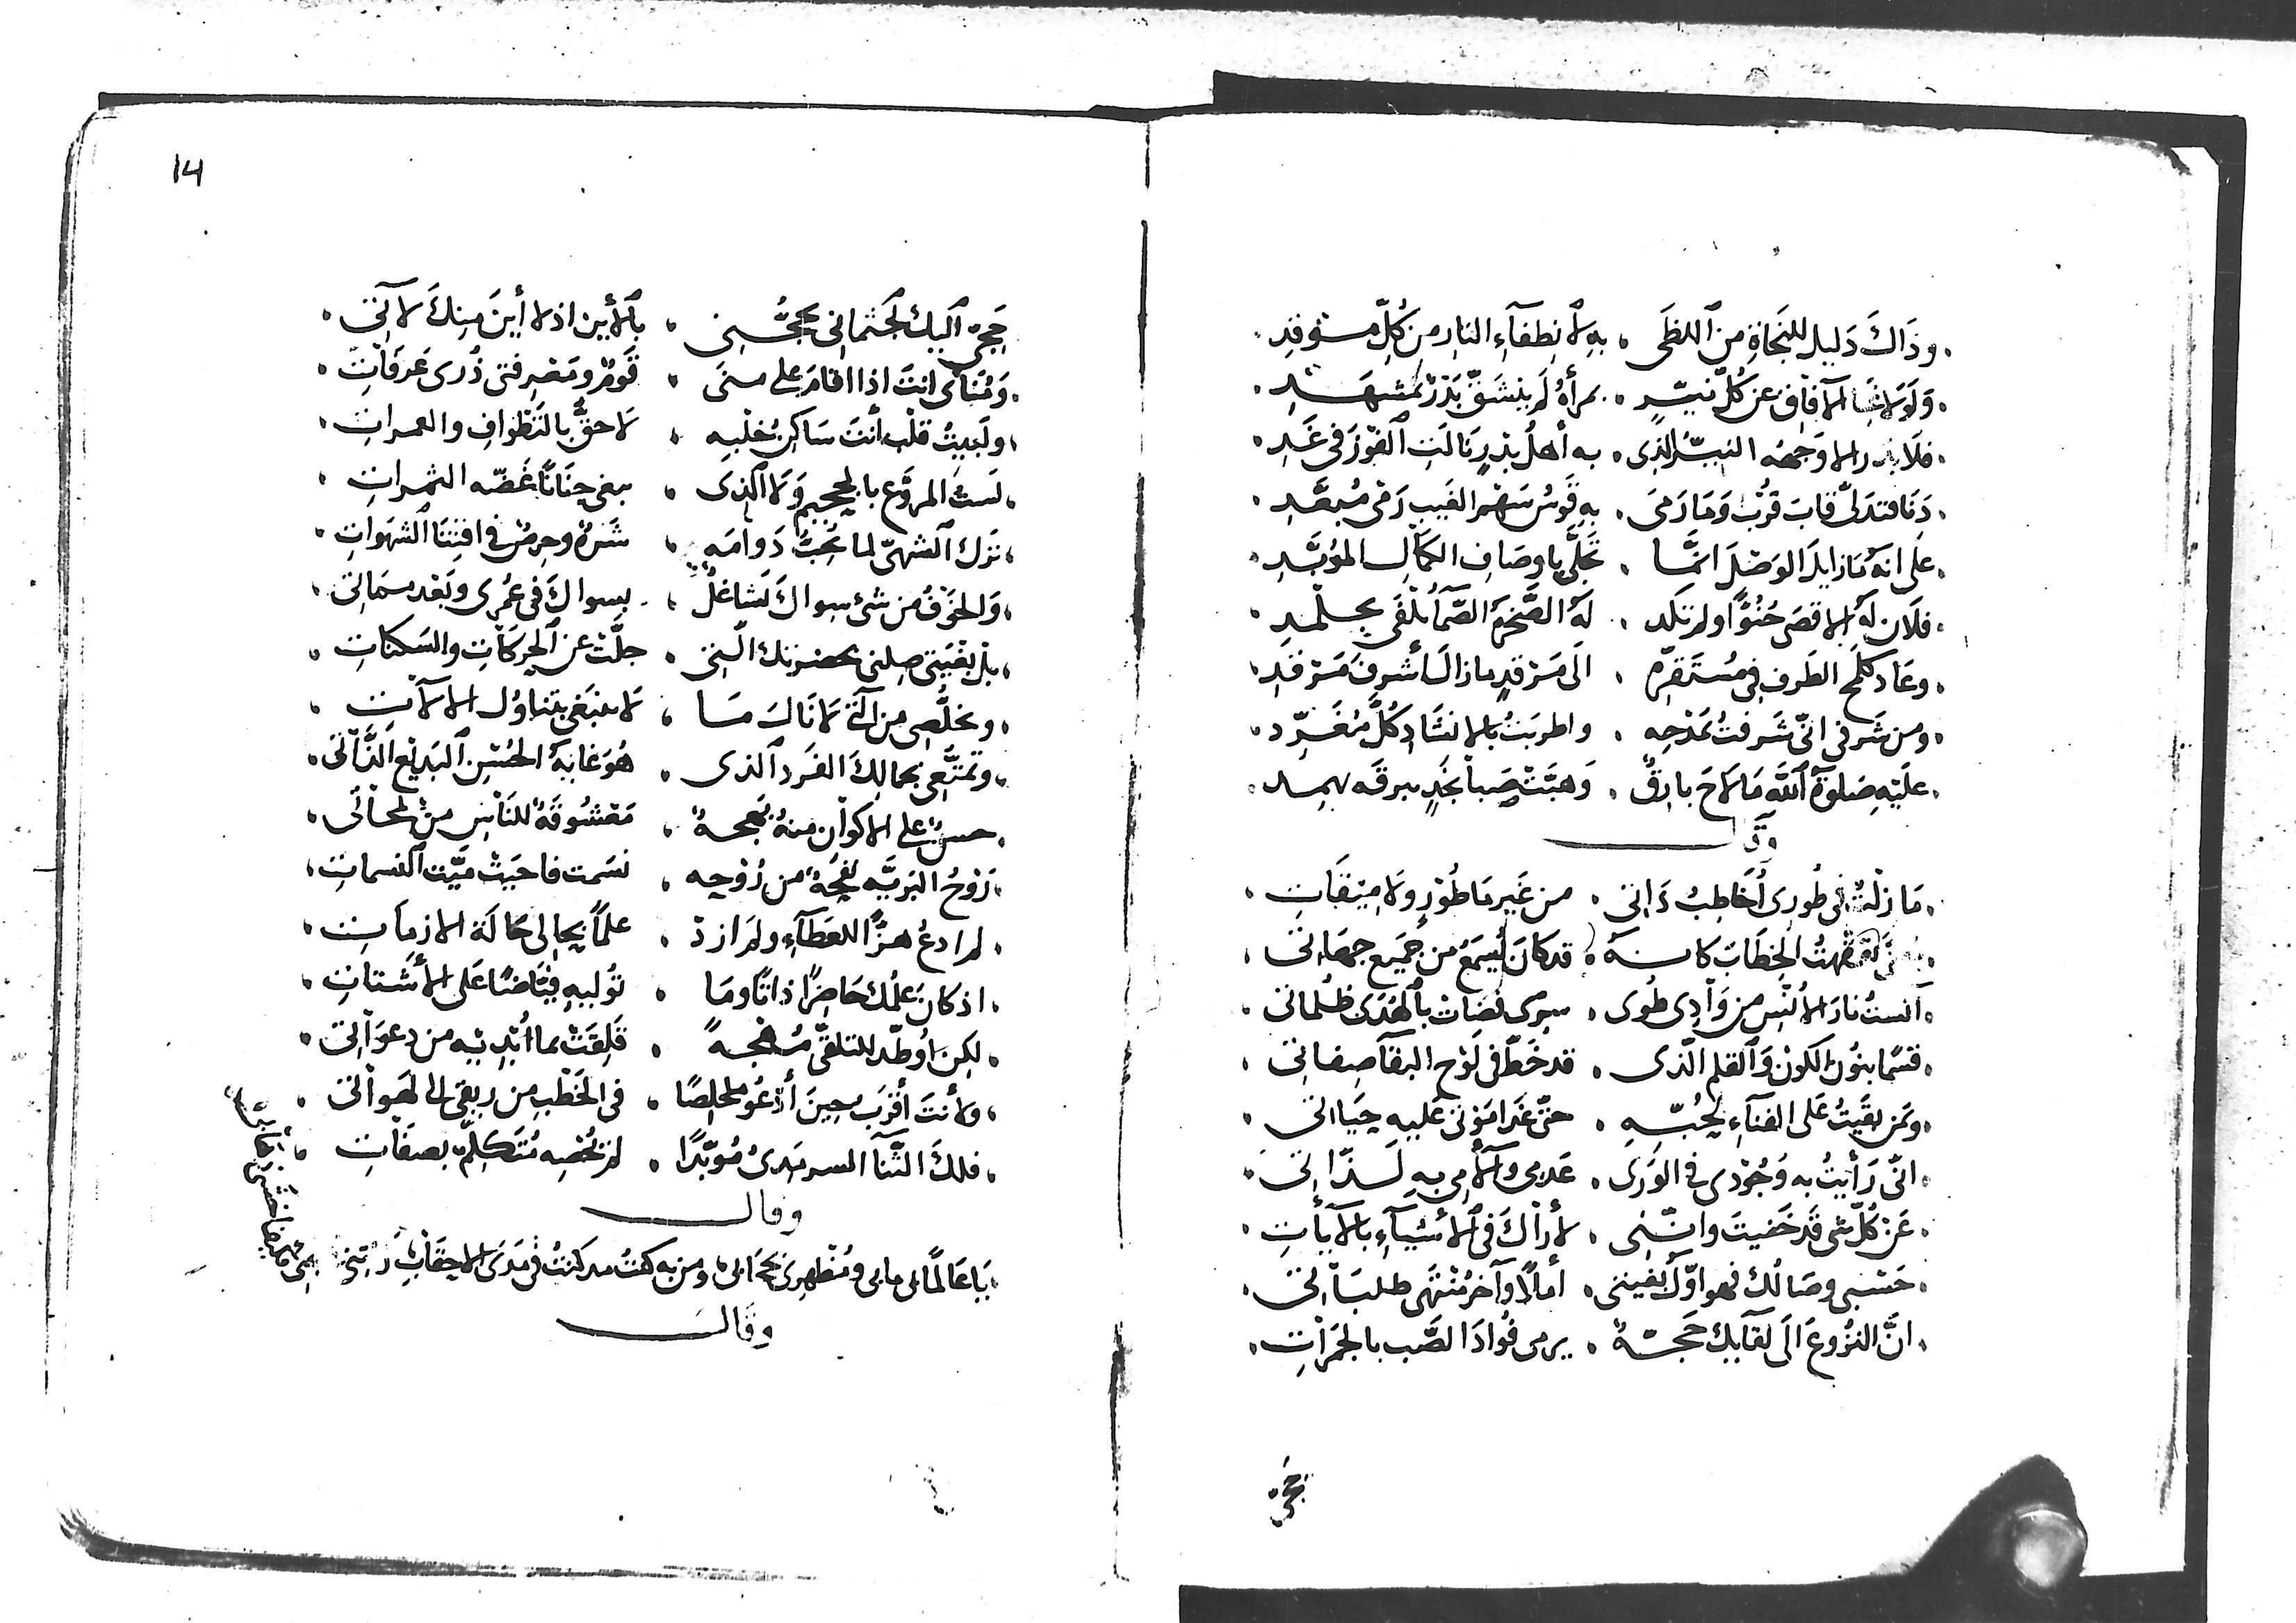 وذَاكَ دَليل للنجَاةِ من ٱللظَى . به لأنطفآءِ النار من كُلّ مستوقدِ
وَلَولَا الآفاق عن كُلّ نيّرٍ . بمرآهُ لم ينشقّ بَدْرٌ بمشهدِ
فلَا بدر الا وَجهُه النيّر الذى . به أهلُ بدرٍ نالتِ ٱلفوزَ فى غَدِ
دَنَا فتدلّى قابَ قُرْب وَمَا رَمىَ . به قَوسُ سَهم الغيب رَمْىَ مُبعّدِ
على انه مَا زايلَ الوَصْلَ انمّا . تجلّى باوصَافِ الكمَالِ المؤبّدِ
فلَان له الاقصَى حُنُوّاً ولم تكَد . لهُ الصَّخرة الصَّمّا تُلْفَى بجلْمدِ
وعَاد كلمح الطَرفِ فى مُستَقرّه . الَى مَرْقدٍ مازالَ أشرفَ مَرقدِ
ومن شَرفى انّى شَرفتُ بمَدْحِه . واطربتُ بالانشَادِ كُلّ مُغرّد
علَيْهِ صَلوةُ ٱللّه مَا لَاحَ بارقٌ . وَهبّتْ صَبا نجَدٍ ببرقه
وقال
مَا زلْتُ فى طُورى أُخَاطبُ ذَاتى . من غَير مَا طُوْرٍ ولَا ميْقَاتِ
الخِطَابَ كانه . قد كانَ يُسمَعُ من جَميع جهَاتى
آنستُ نارَ الأُنْسِ من وَادِى طُوى . سِرى فضَات بٱلهُدَى ظُلماتى
قسَمًا بنُون الكونْ وَٱلقلم الّذى . قد خَطّ فى لَوْح البقَآ صفاتى
وبمَن بقيَتُ عَلى الفنآءِ بحُبّهِ . حتّى غدَا مَوْتى عَليه حيَاتى
انّى رَأيتُ به وَجُوْدى فى الوَرَى . عَدمى وآلامى به لَذّاتى
عَنْ كُلّ شى قد خَفيتَ وانّنى . لأرَاكَ فى ٱلأشيآءِ بالآيَاتِ
حَسْبى وصَالُك فهو اوّلُ بغيتى . أمالًا وآخرُ مُنتَهى طلبَاتى
انّ النزُوعَ الَى لقآيكَ حَجّةٌ . يرمى فُوادَ الصَّب بالجَمرَاتِ
حَجّى
14
حَجّى اليك لجثمانى بحجّنى . بٱلأين اذ لا أينَ منِكَ لآتى
وَمُنَاىَ انتَ اذا اقامَ على منىَ . قَومٌ ومَعْرِفتى ذُرى عَرفَاتِ
ولَبيتُ قلب أنتَ سَاكنُ خُلْبِهِ . لَاحقُّ بالتَطْوافِ والعمراتِ
لستُ المروَّع بالجحيم وَلَا ٱلذى . يبغى جنَانًا غَضّه الثمراتِ
نزكَ ٱلشهىّ لما تُحِبُّ دَوامَه . شَرَهٌ وحِرصٌ فى اقتنا ٱلشهَواتِ
وَالخوفُ من شئ سواكَ لَشاغلٌ . بسواكَ فى عُمْرِى وبَعْد سمَاتى
بلْ بغيَتى صِلنى بحضرتك الّتى . جلّتْ عن ٱلحركَاتِ والسكنَاتِ
وتخلُّصِى من آلَة لَا نَالَ مَا . لَا ينبَغى بتناوُل الآلَاتِ
وتمتّعى بجَمالِكَ الفَرد ٱلذى . هُوَ غَايةُ الحُسْنِ ٱلبَديْع ٱلذَّاتى
حسنٌ على الاكوَانِ منهُ بَهجةٌ . مَعْشُوقَةٌ للنَاسِ
رَوْحُ البَريّه نفحَةٌ من رُوْحِه . نسَمت فاحيَتْ ميَّت ٱلنسماتِ
لم ادعُ هزًّا للعَطآءِ ولم ازدْ . علماً بحالى حَالَة الازمَاتِ
اذ كانَ علْمُك حَاضِرًا ذاتًا ومَا . تُوليهِ فيَّاضًا عَلى الأَشتاتِ
لكن اوُطّد للتلقّى مُهْجةً . قَلِقَتْ بما اُبْديْهِ من دعوَاتى
ولأنتَ أقرَب حينَ أدْعُو مخلِصًا . فى الخَطْبِ من ريقى الى لَهوَاتى
فلكَ الثّنَآ السرمَدىُّ مُؤبّدًا . لم تُحْصِه مُتَكلّمٌ بصفَاتِ
وقال
يَا عَالمًا بى ومُظهرى بحجَابى ومن به كنتُ مذ كنتُ فى مَدَى الاحقَابِ
وقَالَ